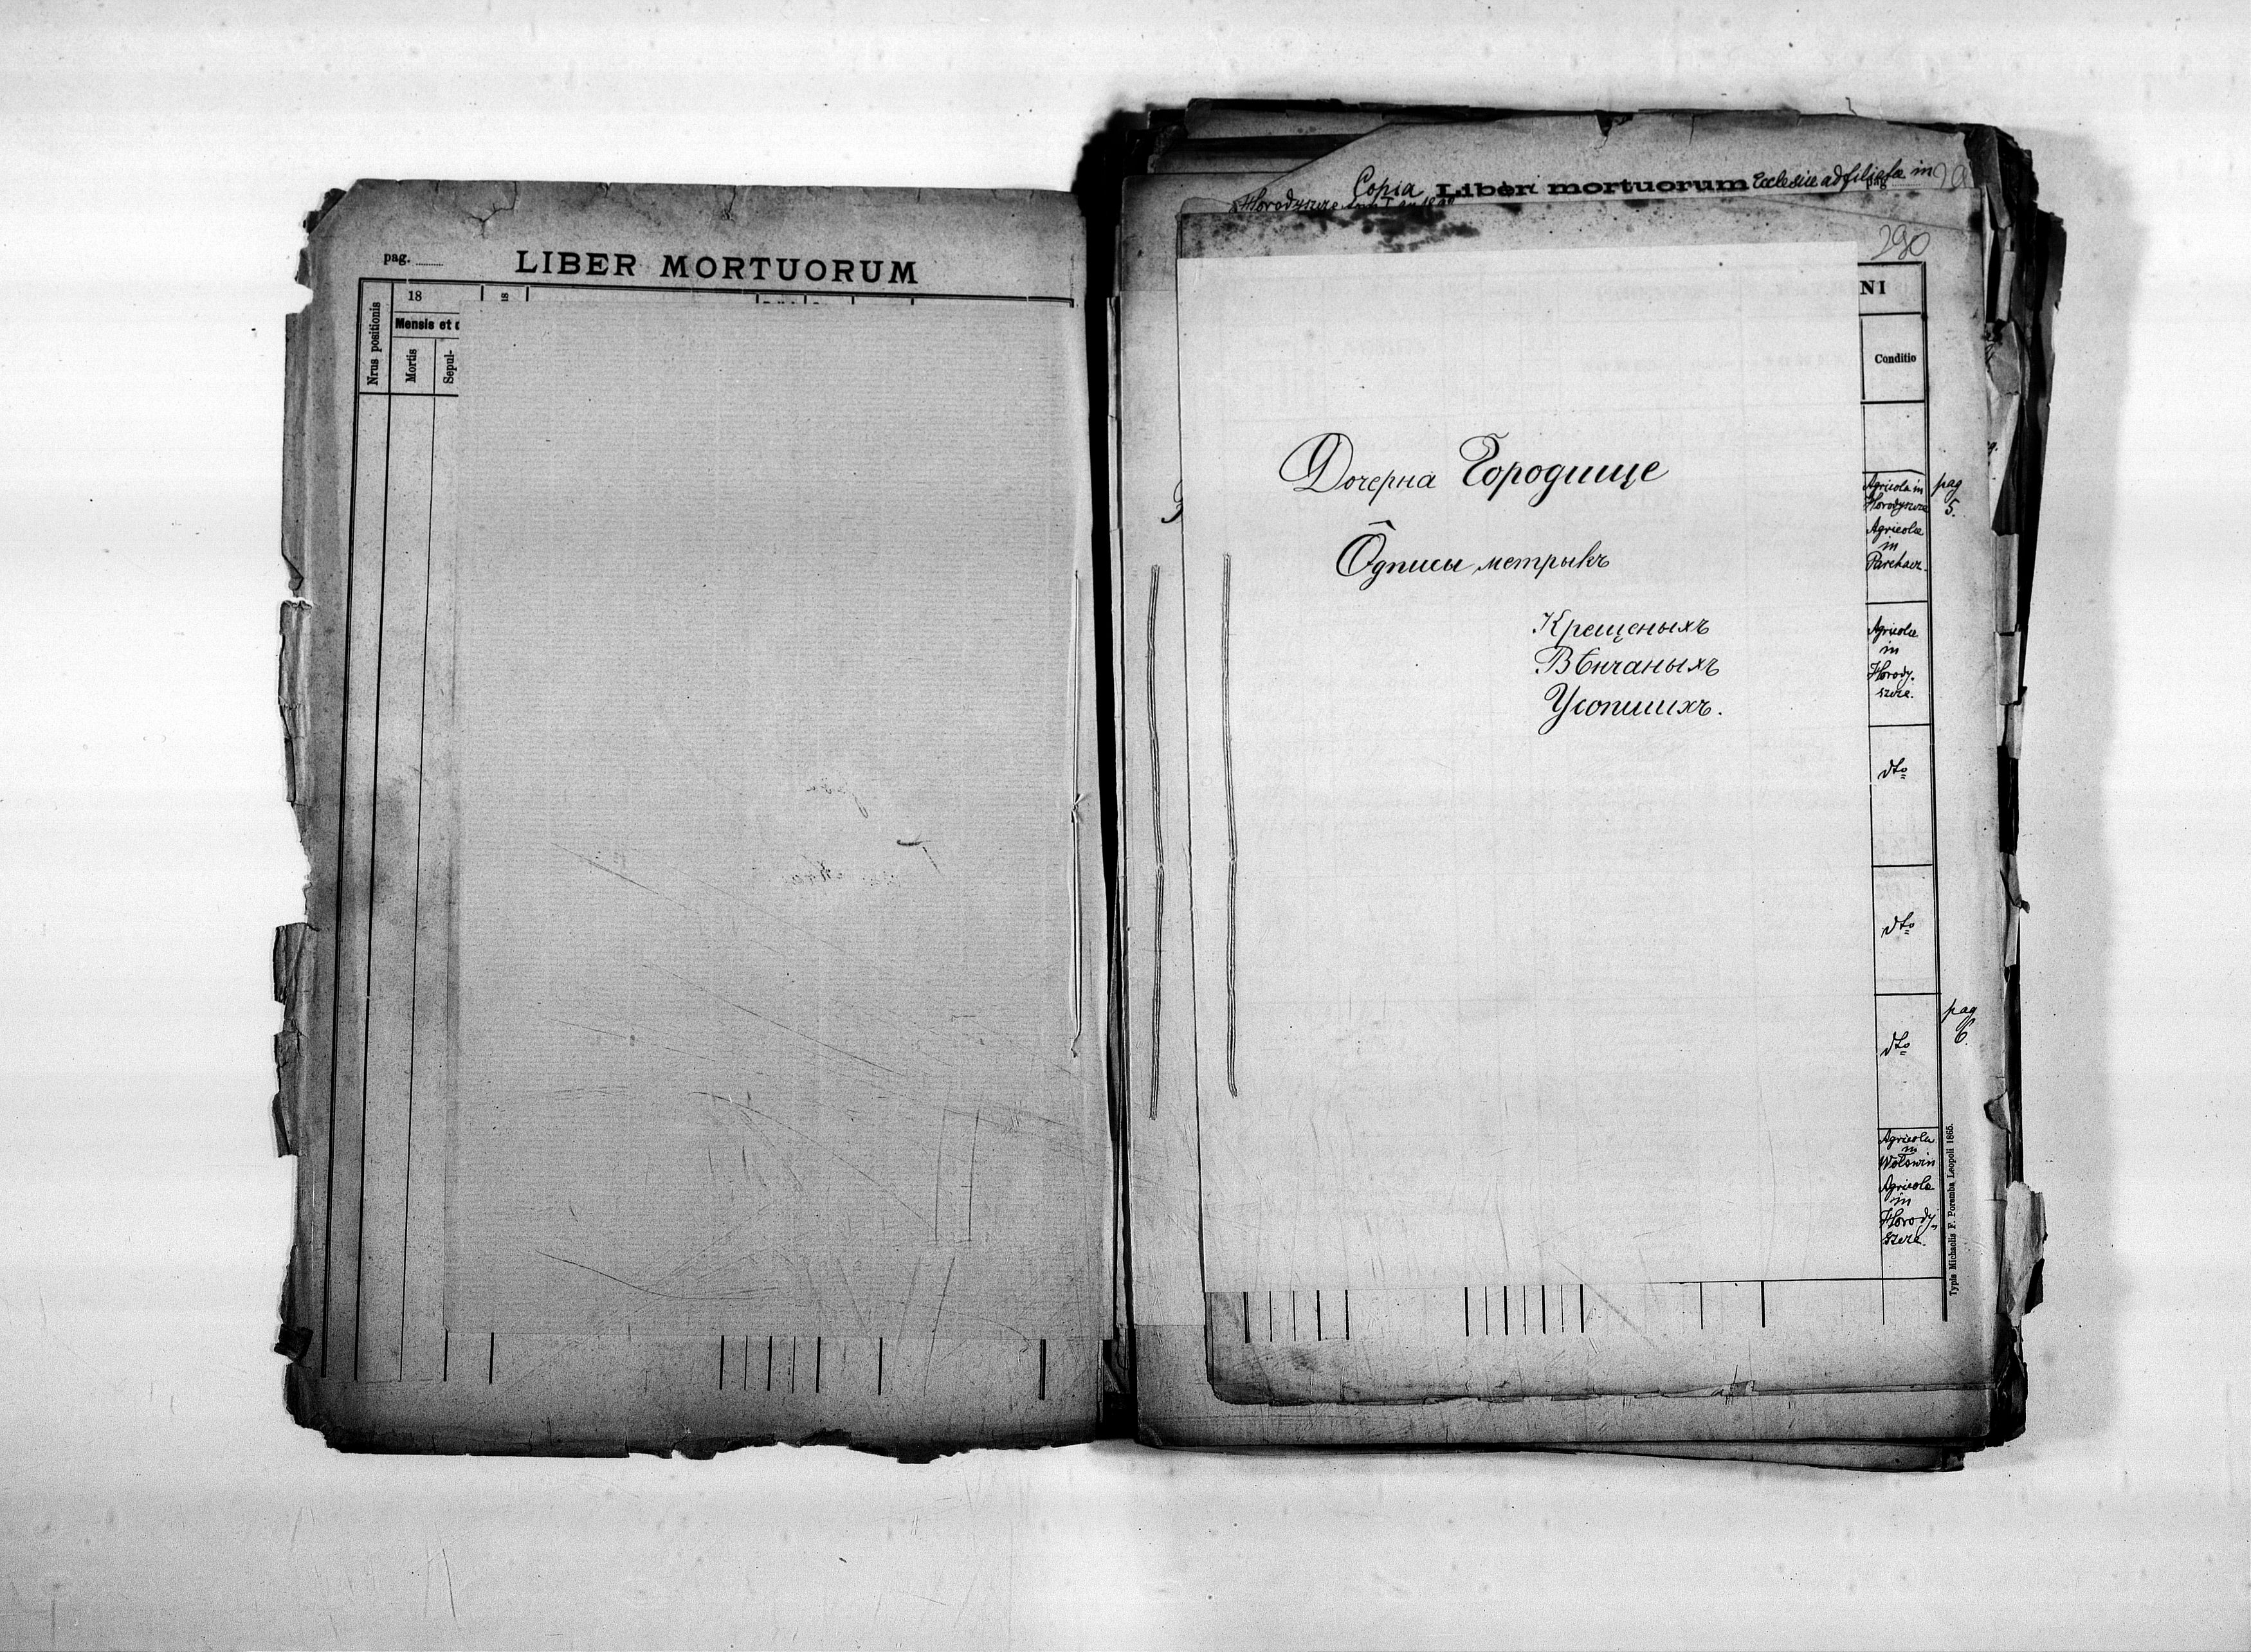 pag.
LIBER MORTUORUM
Nrus positionis
18
Mensis et
Mortis
Sepul-
Copia Liber mortuorum Ecclesiae ad filialæ in
Horodyszcze
290
NI
Conditio
Дочерна Городище
Ôдписы метрыкъ
Крещеныхъ
Вѣнчаныхъ
Усопшихъ.
Agricola in
Horodyszcze
pag
5.
Agricola
in
Parchacz.
Agricola
in
Horody-
szcze.
dto
dto
dto
pag
6.
Agricola
in
Wołswin
Agricola
in
Horody-
szcze.
Typis Michaelis F. Poremba Leopoli 1865.